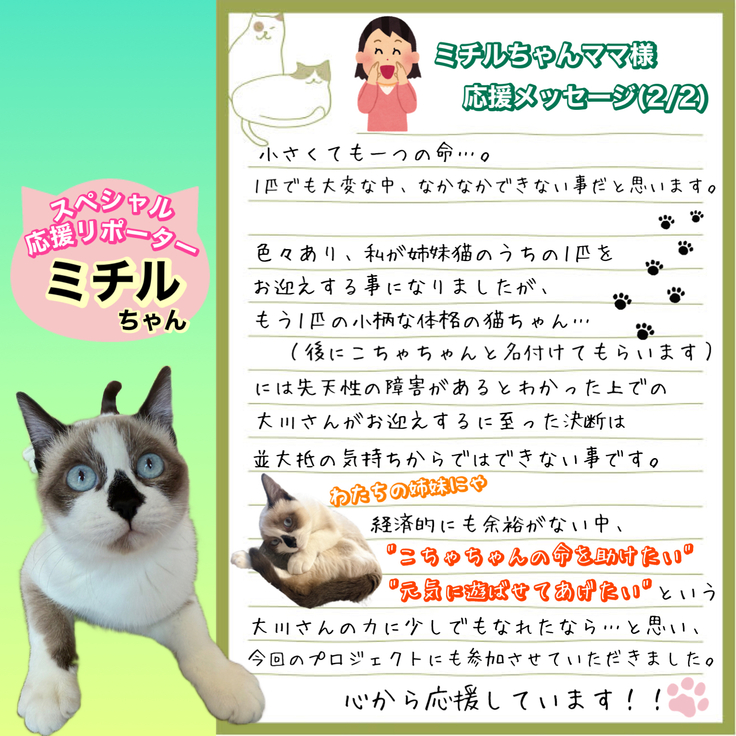 ミチルちゃんママ様
応援メッセージ(2/2)
小さくても一つの命…。
1匹でも大変な中、なかなかできない事だと思います。
色々あり、私が姉妹猫のうちの1匹を
お迎えする事になりましたが、
もう1匹の小柄な体格の猫ちゃん…
(後にこちゃちゃんと名付けてもらいます)
には先天性の障害があるとわかった上での
大川さんがお迎えするに至った決断は
並大抵の気持ちからではできない事です。
わたちの姉妹にゃ
経済的にも余裕がない中、
"こちゃちゃんの命を助けたい"
"元気に遊ばせてあげたい"という
大川さんの力に少しでもなれたなら…と思い、
今回のプロジェクトにも参加させていただきました。
心から応援しています!!
スペシャル
応援リポーター
ミチル
ちゃん